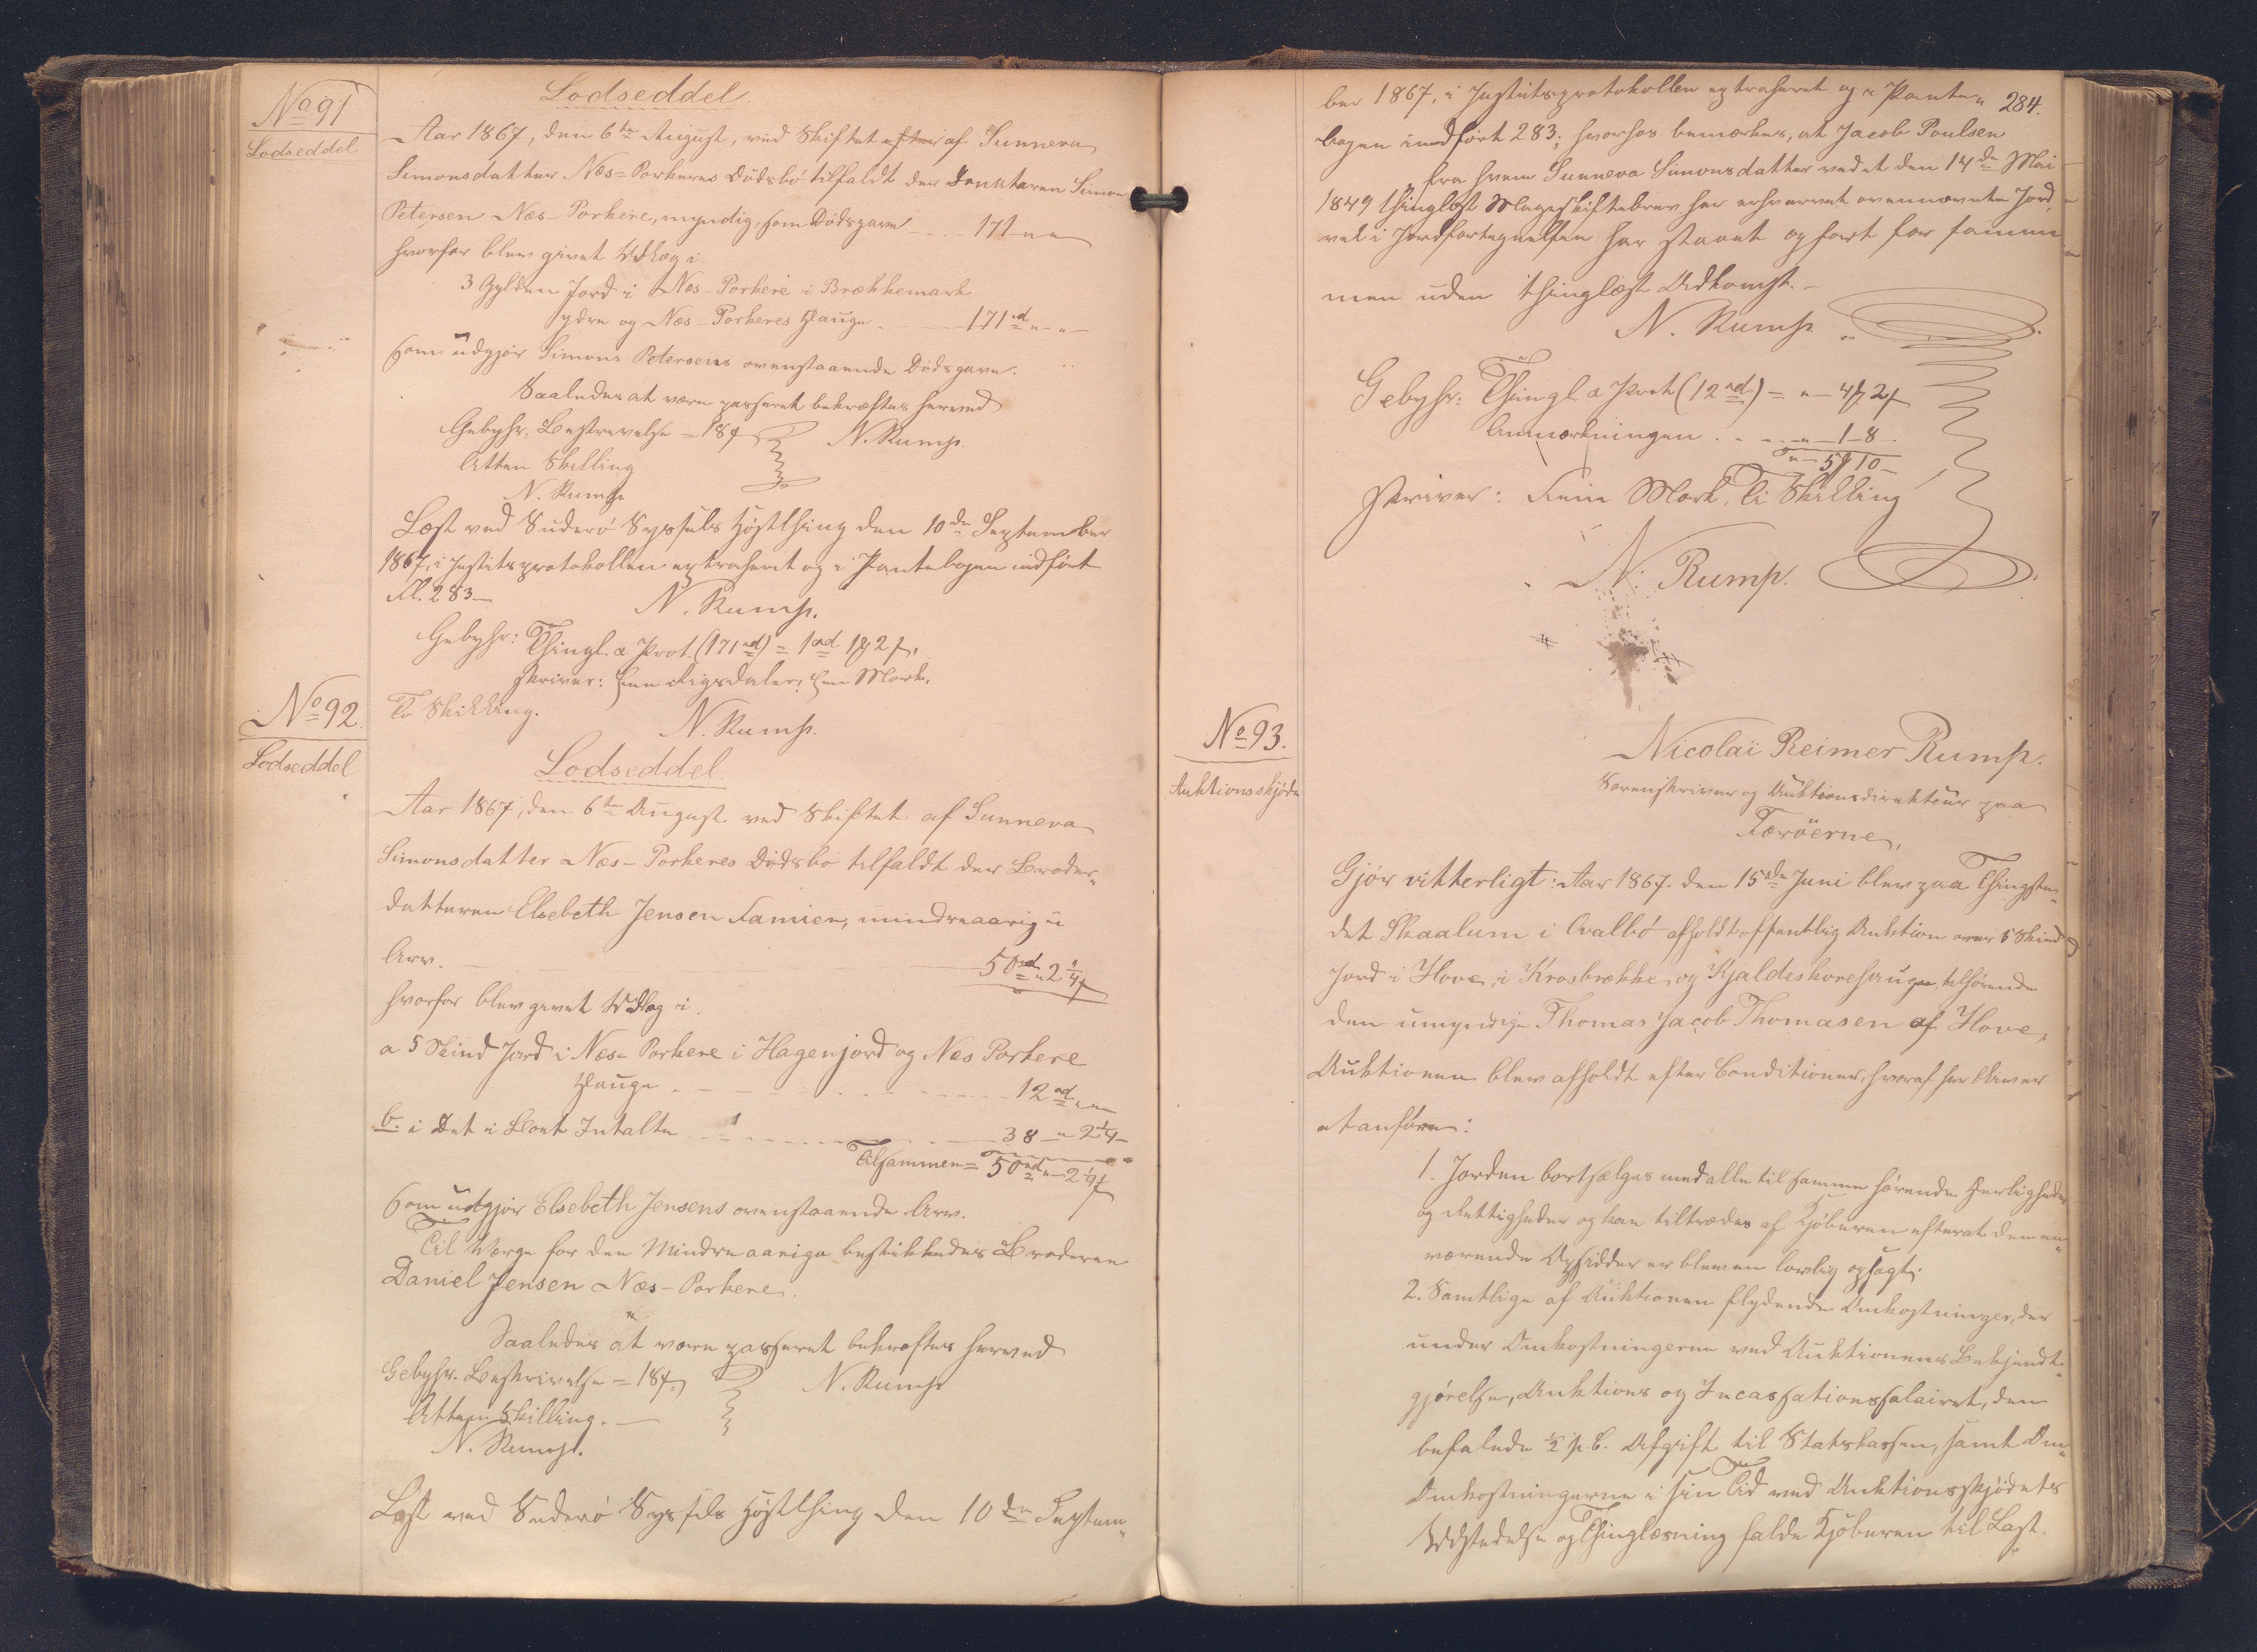 No 91
Lodseddel
Lodseddel
Aar 1867, den 6te August, ved Skiftet efter af Sunneva
Simonsdatter Næs-Porkeres Dödsbo tilfaldt der Donataren Simon
Petersen Næs-Porkere, myndig, som Dödsgave 171 " "
hvorfor blev givet Udlæg i
3 Gylden Jord i Næs-Porkere i Brækkemark
ydre og Næs-Porkeres Hauge 171 rd " - " -
som udgjör Simon Petersens ovenstaaende Dödsgave.
Saaledes at være passeret bekræftes herved
Gebyhr. Beskrivelse = 18 ß N. Rump.
Atten Skilling
N. Rump
Læst ved Suderö Syssels Höstthing den 10de September
1867, i Justitsprotokollen extraheret og i Pantebogen indfört
Fl. 283 —
N. Rump.
Gebyhr: Thingl. a Prot. (171 rd) = 1 rd 1 ℳ 2 ß,
skriver: Een Rigsdaler, Een Mark,
To Skilling.
N. Rump.
No 92.
Lodseddel
Lodseddel
Aar 1867, den 6te August ved Skiftet af Sunneva
Simonsdatter Næs-Porkeres Dödsbo tilfaldt der Broder„
datteren Elsebeth Jensen Famien, mindreaarig i
Arv. 50 rd " 2 1/4 ß
hvorfor blev givet Udlæg i.
a 5 Skind Jord i Næs-Porkere i Hagenjord og Næs Porkere
Hauge 12 rd " "
b. i Det i Boet Intalte 38 — " 2 1/4 -
Tilsammen = 50 rd " 2 1/4 ß
som udgjör Elsebeth Jensens ovenstaaende Arv.
Til Værge for den Mindreaarige beskikkedes Broderen
Daniel Jensen Næs-Porkere.
Saaledes at være passeret bekræftes herved
Gebyhr. Beskrivelse = 18 ß N. Rump
Atten Skilling. —
N. Rump.
Læst ved Suderö Syssels Höstthing den 10de Septem„
284.
ber 1867, i Justitsprotokollen extraheret og i Pante„
bogen indfört 283; hvorhos bemærkes, at Jacob Poulsen
fra hvem Sunneva Simonsdatter ved et den 14de Mai
1849 thinglæst Mageskiftebrev har erhvervet ovennævnte Jord,
vel i Jordfortegnelsen har staaet opfört for samme
men uden thinglæst Adkomst. —
N. Rump
Gebyhr: Thingl a Prot (12 rd) = " — 4 ℳ 2 ß
Anmærkningen " — 1 - 8 -
" — 5 ℳ 10 -
skriver: Fem Mark, Ti Skilling
N. Rump.
No 93.
Auktionsskjöde
Nicolai Reimer Rump.
Sorenskriver og Auktionsdirekteur paa
Færöerne,
Gjör vitterligt: Aar 1867. den 15de Juni blev paa Thingste„
det Skaalum i Qvalbö afholdt offentlig Auktion over 5 Skind
Jord i Hove, i Krosbrække og Kjaldeskorehauge, tilhörende
den umyndige Thomas Jacob Thomasen af Hove,
Auktionen blev afholdt efter Conditioner, hvoraf her bliver
at anföre:
1. Jorden bortsælges med alle til samme hörende Herligheder
og Rettigheder og kan tiltrædes af Kjöberen efterat den nu„
værende Opsidder er bleven lovlig opsagt;
2. Samtlige af Auktionen flydende Omkostninger, der
under Omkostningerne ved Auktionens Bekjendt„
gjörelse, Auktions og Incassationssalairet, den
befalede 1/2 p. C. Afgift til Statskassen, samt Om„
Omkostningerne i sin Tid ved Auktionsskjödets
Udstedelse og Thinglæsning falde Kjöberen til Last.